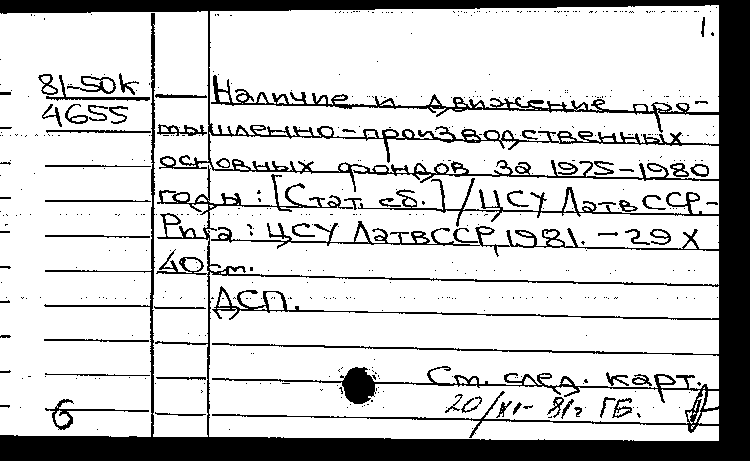 1.
81-50к
4655
Наличие и движение про-
мышленно-производственных
основных фондов за 1975-1980
годы : [Стат. сб.] / ЦСУ ЛатвССР.-
Рига : ЦСУ ЛатвССР, 1981. - 29 X
40 см.
ДСП.
См. след. карт.
20/XI- 81г ГБ.
6